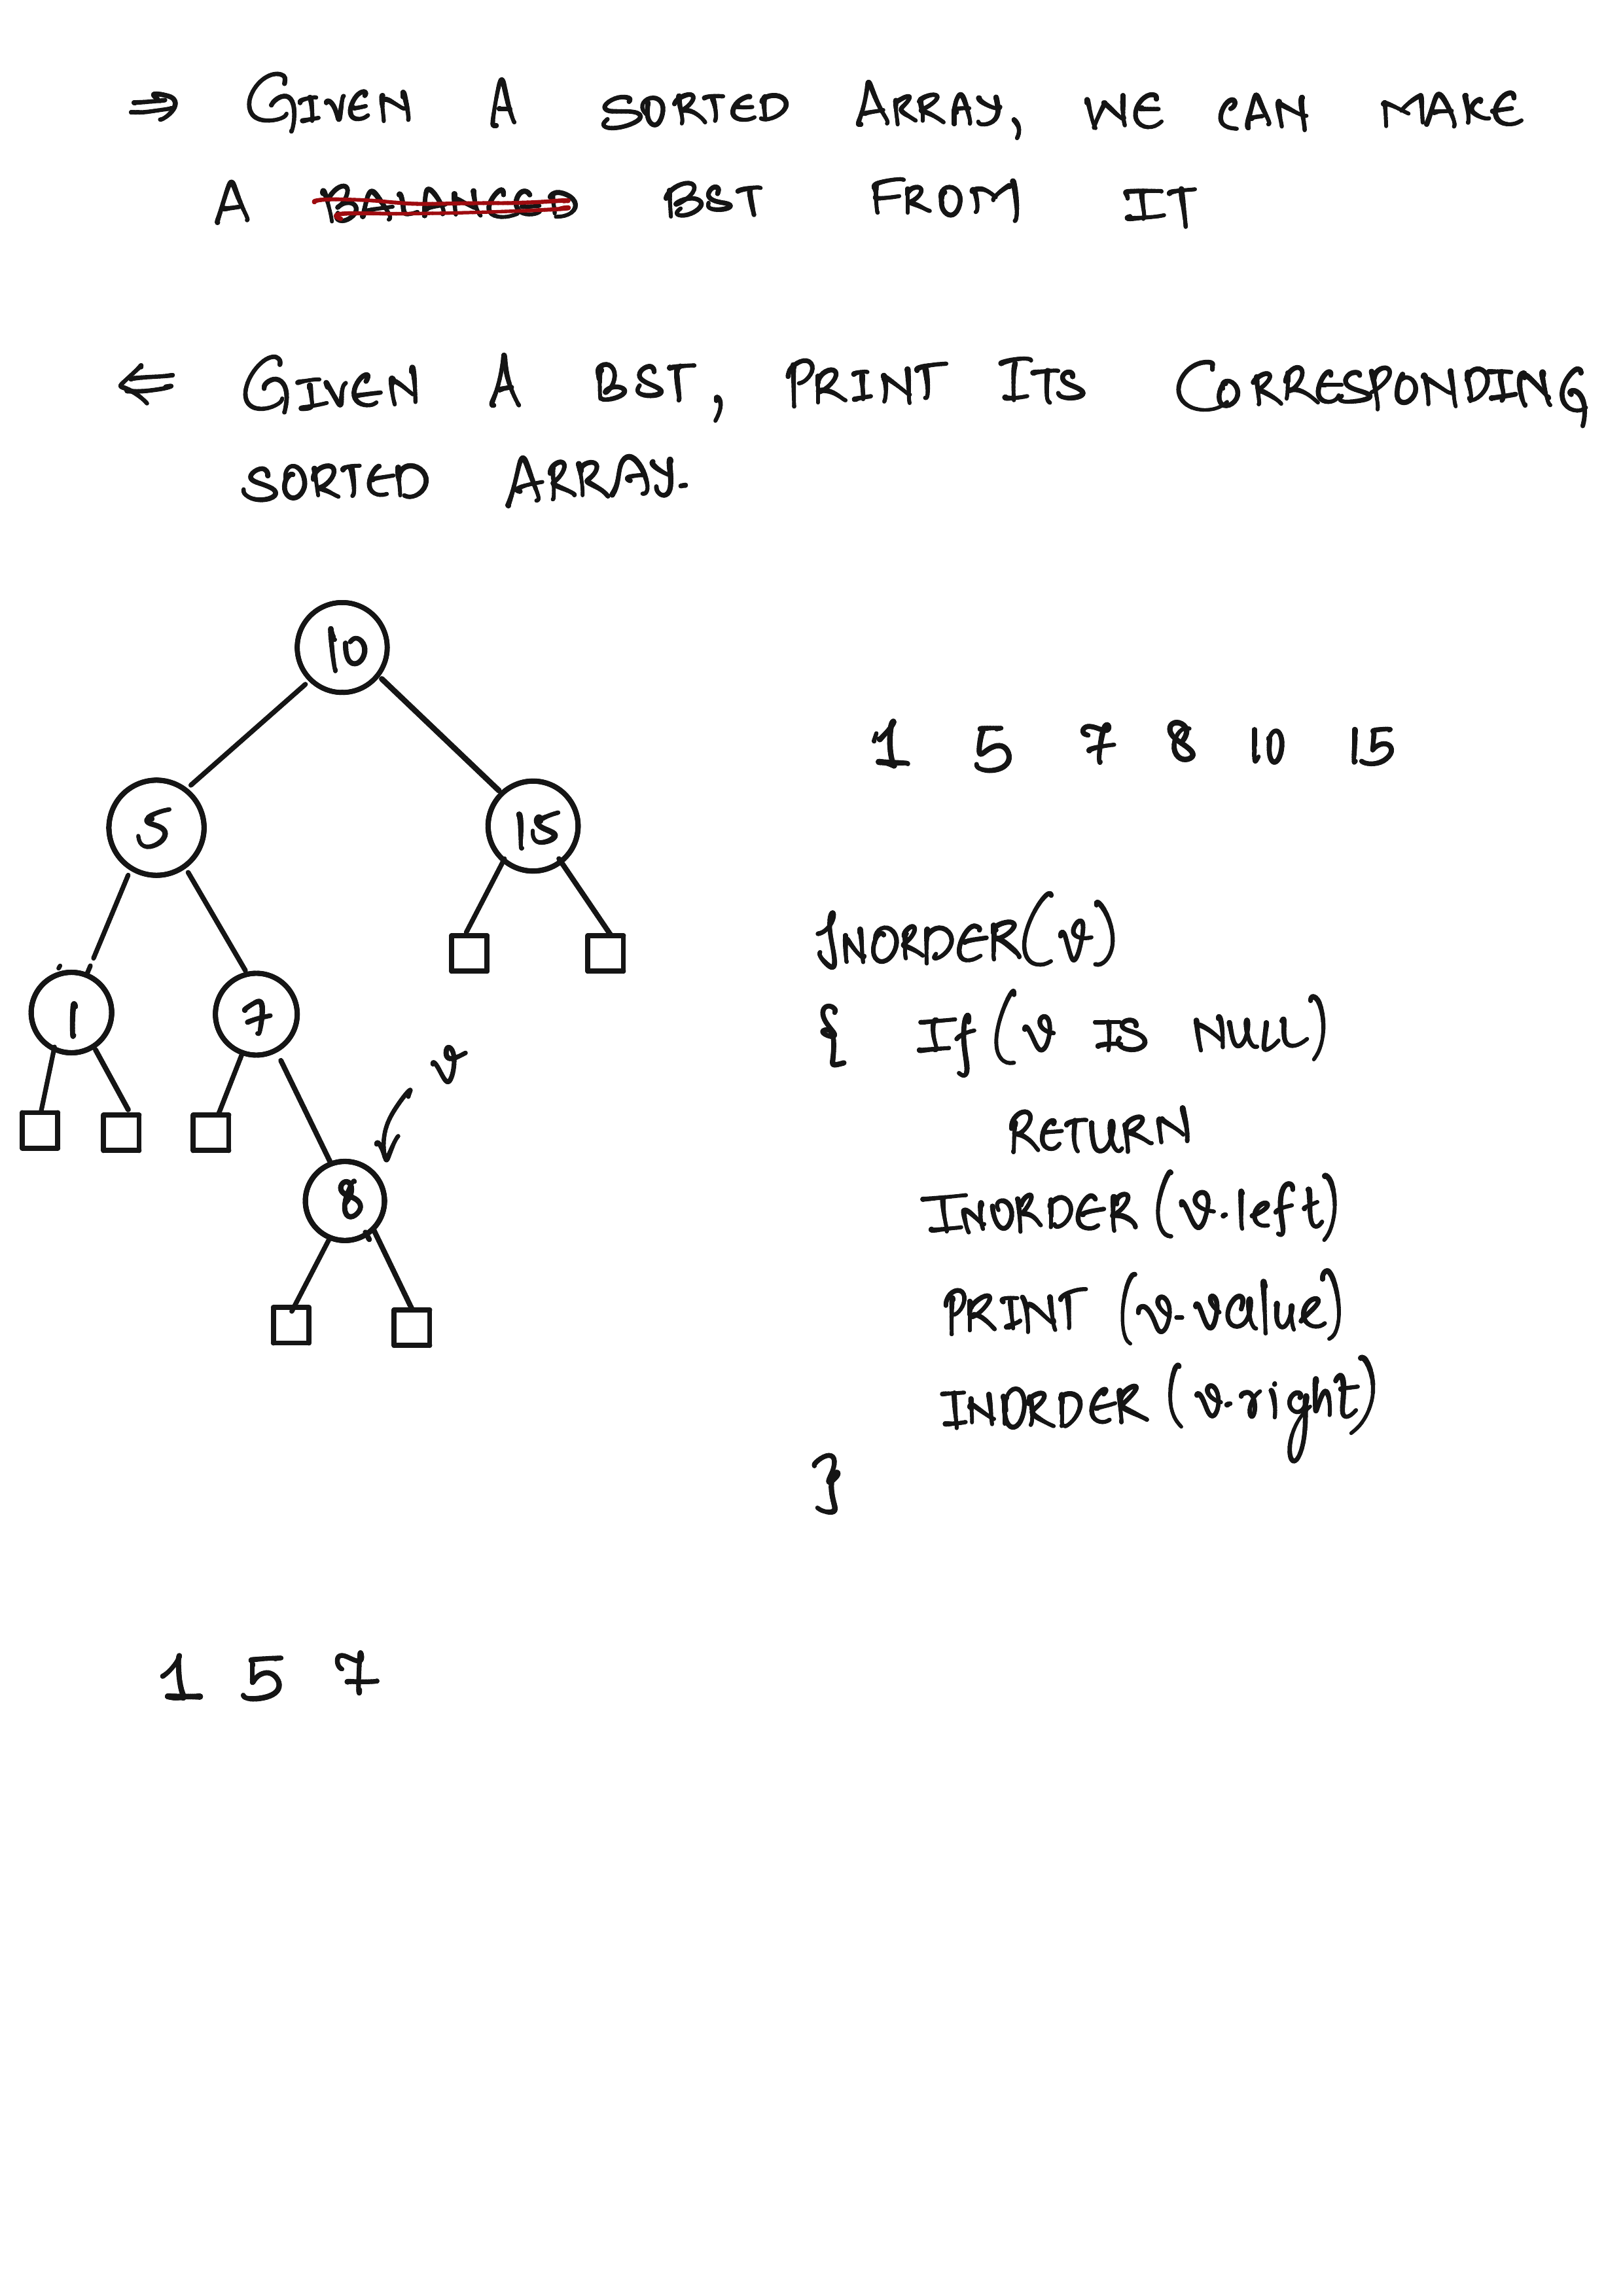 ⇒ GIVEN A SORTED ARRAY, WE CAN MAKE
A BALANCED BST FROM IT
⇐ GIVEN A BST, PRINT ITS CORRESPONDING
SORTED ARRAY.
10
5 15
1 7
v
8
1 5 7 8 10 15
INORDER(v)
{ If (v IS NULL)
RETURN
INORDER (v.left)
PRINT (v.value)
INORDER (v.right)
}
1 5 7